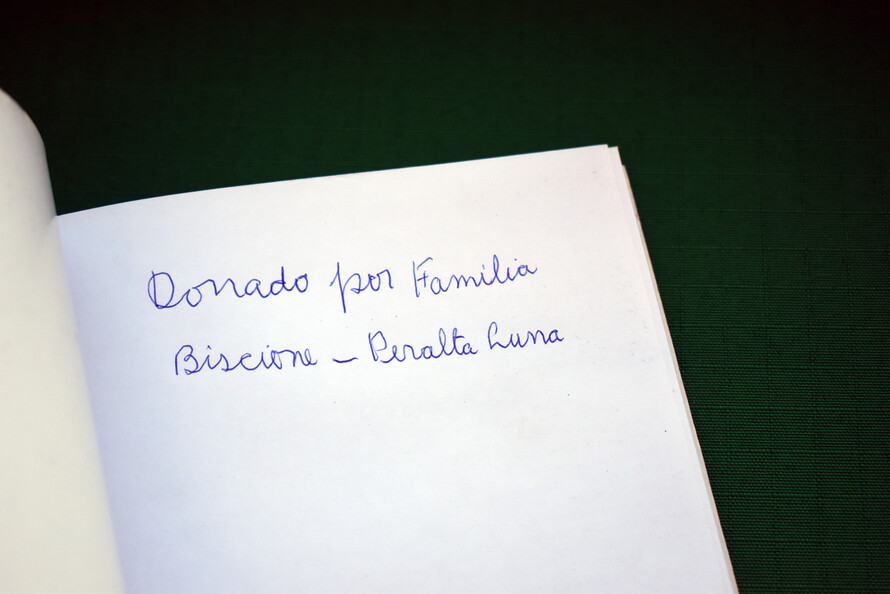 Donado por Familia
Biscione - Peralta Luna